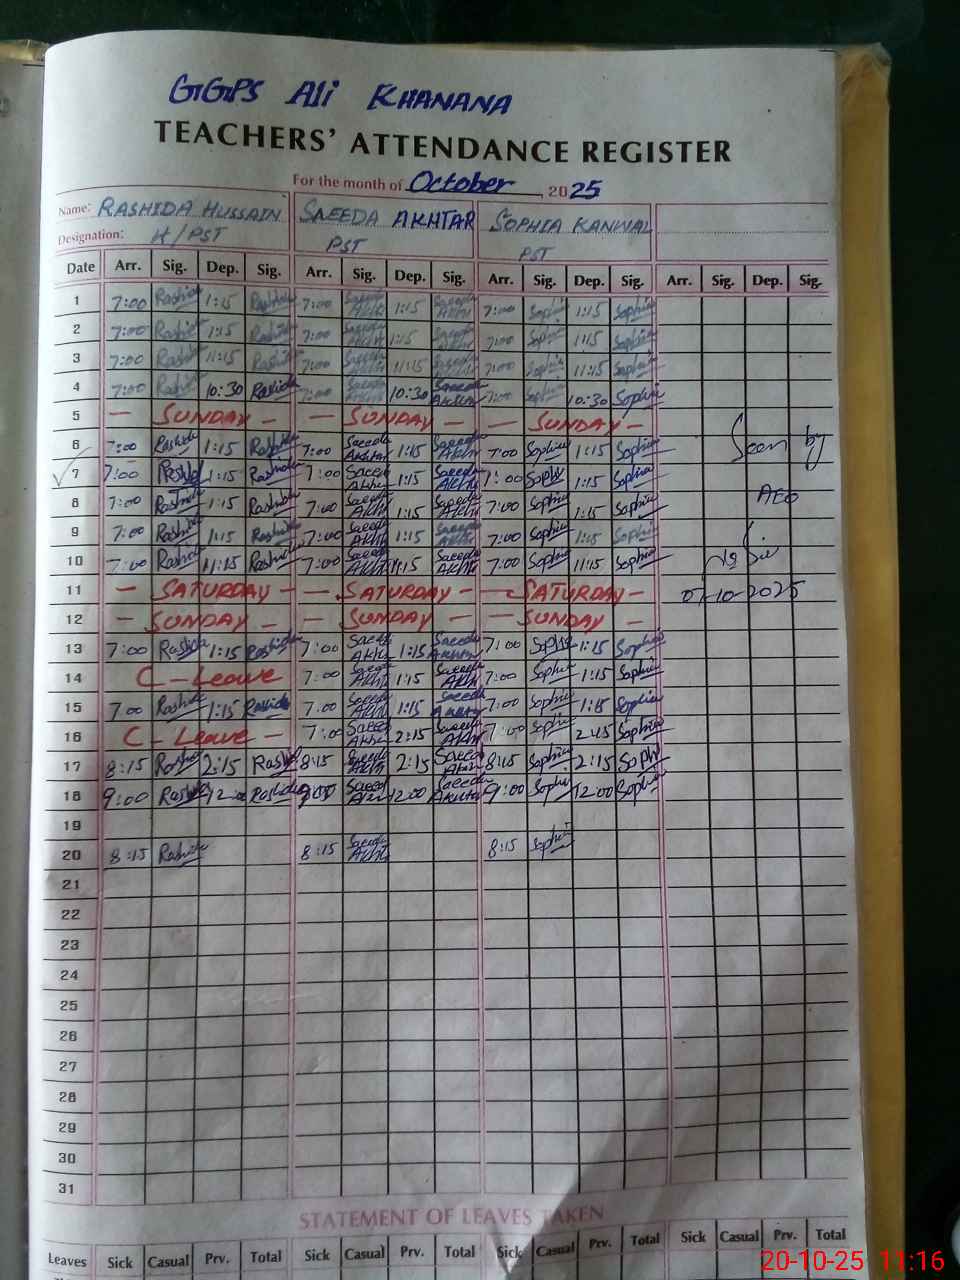 GGPS Ali KHANANA
TEACHERS' ATTENDANCE REGISTER
For the month of October 2025
Name: RASHIDA HUSSAIN SAEEDA AKHTAR SOPHIA KANWAL
Designation: H/PST PST PST
Date Arr. Sig. Dep. Sig. Arr. Sig. Dep. Sig. Arr. Sig. Dep. Sig. Arr. Sig. Dep. Sig.
1 7:00 Rashida 1:15 Rashida 7:00 Saeeda Akhtar 1:15 Saeeda Akhtar 7:00 Sophia 1:15 Sophia
2 7:00 Rashida 1:15 Rashida 7:00 Saeeda Akhtar 1:15 Saeeda Akhtar 7:00 Sophia 1:15 Sophia
3 7:00 Rashida 11:15 Rashida 7:00 Saeeda Akhtar 11:15 Saeeda Akhtar 7:00 Sophia 11:15 Sophia
4 7:00 Rashida 10:30 Rashida 7:00 Saeeda Akhtar 10:30 Saeeda Akhtar 7:00 Sophia 10:30 Sophia
5 — SUNDAY — — SUNDAY — — SUNDAY —
6 7:00 Rashida 1:15 Rashida 7:00 Saeeda Akhtar 1:15 Saeeda Akhtar 7:00 Sophia 1:15 Sophia Seen by
7 7:00 Rashida 1:15 Rashida 7:00 Saeeda Akhtar 1:15 Saeeda Akhtar 7:00 Sophia 1:15 Sophia
8 7:00 Rashida 1:15 Rashida 7:00 Saeeda Akhtar 1:15 Saeeda Akhtar 7:00 Sophia 1:15 Sophia AEO
9 7:00 Rashida 1:15 Rashida 7:00 Saeeda Akhtar 1:15 Saeeda Akhtar 7:00 Sophia 1:15 Sophia
10 7:00 Rashida 11:15 Rashida 7:00 Saeeda Akhtar 11:15 Saeeda Akhtar 7:00 Sophia 11:15 Sophia
11 — SATURDAY — — SATURDAY — — SATURDAY — 07-10-2025
12 — SUNDAY — — SUNDAY — — SUNDAY —
13 7:00 Rashida 1:15 Rashida 7:00 Saeeda Akhtar 1:15 Saeeda Akhtar 7:00 Sophia 1:15 Sophia
14 C - Leave 7:00 Saeeda Akhtar 1:15 Saeeda Akhtar 7:00 Sophia 1:15 Sophia
15 7:00 Rashida 1:15 Rashida 7:00 Saeeda Akhtar 1:15 Saeeda Akhtar 7:00 Sophia 1:15 Sophia
16 C - Leave — 7:00 Saeeda Akhtar 2:15 Saeeda Akhtar 7:00 Sophia 2:15 Sophia
17 8:15 Rashida 2:15 Rashida 8:15 Saeeda Akhtar 2:15 Saeeda Akhtar 8:15 Sophia 2:15 Sophia
18 9:00 Rashida 12:00 Rashida 9:00 Saeeda Akhtar 12:00 Saeeda Akhtar 9:00 Sophia 12:00 Sophia
19
20 8:15 Rashida 8:15 Saeeda Akhtar 8:15 Sophia
21
22
23
24
25
26
27
28
29
30
31
STATEMENT OF LEAVES TAKEN
Leaves Sick Casual Prv. Total Sick Casual Prv. Total Sick Casual Prv. Total Sick Casual Prv. Total
20-10-25 11:16